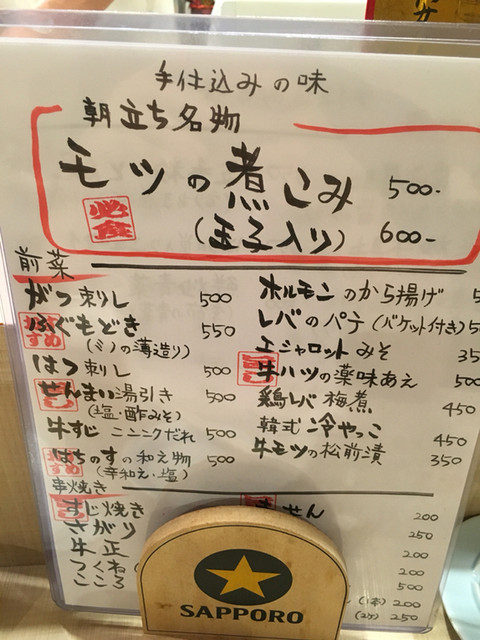 手仕込みの味
朝立ち名物
モツの煮こみ 500-
必食
(玉子入り) 600-
前菜
がつ刺し 500
ふぐもどき 550
(ミノの薄造り)
はつ刺し 500
せんまい湯引き 500
(塩・酢みそ)
牛すじ ニンニクだれ 500
はちのすの和え物 500
(辛和え・塩)
ホルモンのから揚げ
レバのパテ(バケット付き)
エシャロットみそ
牛ハツの薬味あえ
鶏レバ梅煮 450
韓式冷やっこ 450
牛モツの松前漬 350
串焼き
すじ焼き
さがり
牛正
つくね
こころ
200
250
200
200
500
(1本) 200
(2ケ) 250
SAPPORO